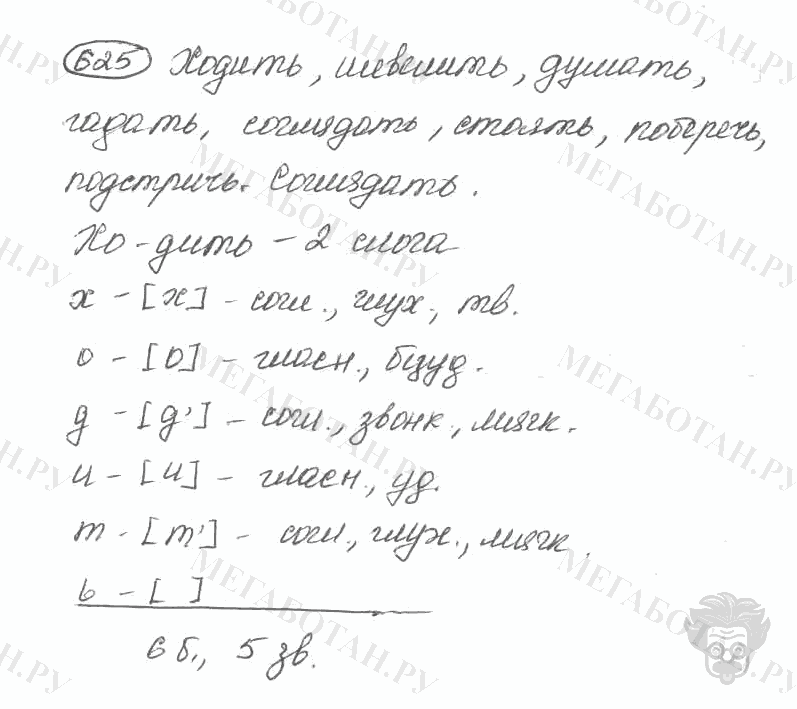 625 Ходить, шевелить, думать,
гадать, соглядать, стоять, поберечь,
подстричь. Соглядать.
Хо-дить – 2 слога
х – [х] – согл., глух., тв.
о – [о] – гласн., безуд.
д – [д'] – согл., звонк., мягк.
и – [и] – гласн., уд.
т – [т'] – согл., глух., мягк.
ь – [ ]
6 б., 5 зв.
МЕГАБОТАН.РУ